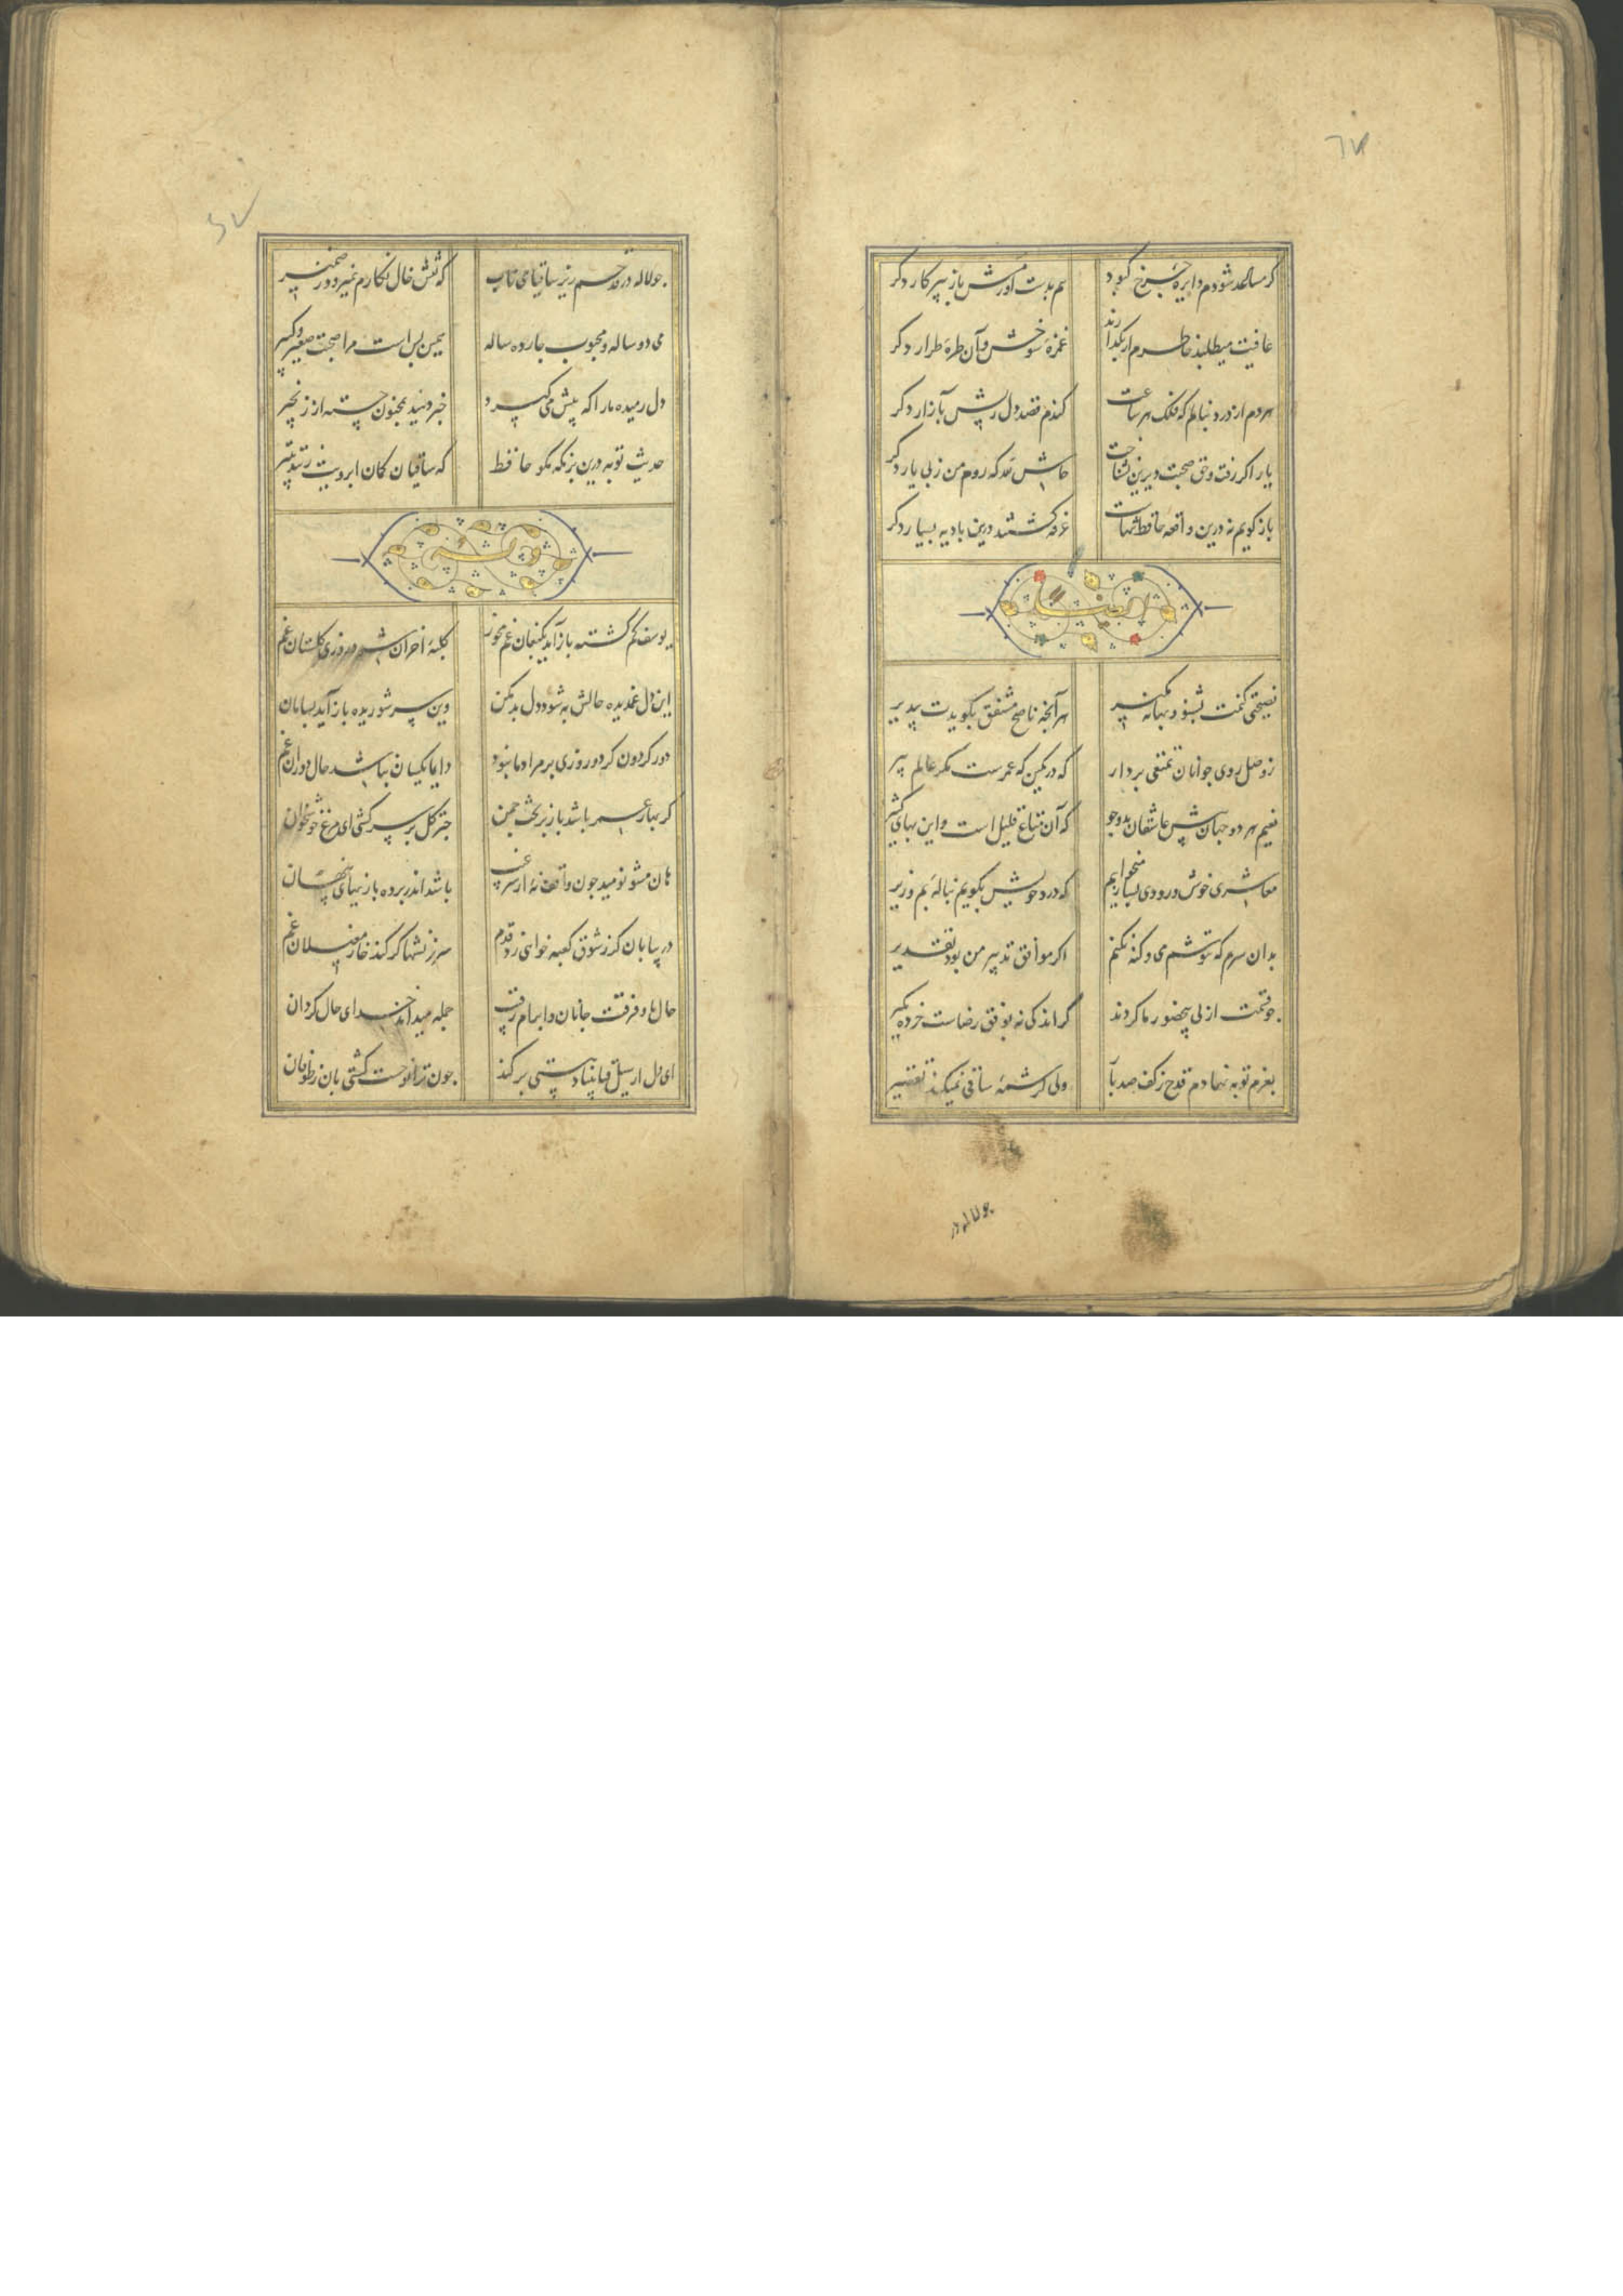 ٦٧
کر مساعد شودم دایره چرخ کبود هم بدست آورمش باز ببرکار دکر
عافیت میطلبد خاطرم ار بکذارند غمزه شوخش وآن طره طرار دکر
هردم از درد بنالم که فلک هر ساعت کندم قصد دل ریش بآزار دکر
یار اکر رفت وحق صحبت دیرین نشناخت حاش لله که روم من زپی یار دکر
باز کویم نه درین واقعه حافظ تنهاست غرقه کشتند درین بادیه بسیار دکر
ایضا له
نصیحتی کنمت بشنو وبهانه مکیر هر آنچه ناصح مشفق بکویدت بپذیر
زوصل روی جوانان تمتعی بردار که در کمین که عمرست مکر عالم پیر
نعیم هر دو جهان پیش عاشقان بدو جو که آن متاع قلیل است واین بهای کثیر
معاشری خوش ورودی بساز میخواهم که درد خویش بکویم بناله بم وزیر
بدان سرم که ننوشم می وکنه نکنم اکر موافق تدبیر من بود تقدیر
جو قسمت ازلی بیحضور ما کردند کر اندکی نه بوفق رضاست خرده مکیر
بعزم توبه نهادم قدح زکف صد بار ولی کرشمه ساقی نمیکند تقصیر
جو لاله در
جو لاله در قدحم ریز ساقیا می ناب که نقش خال نکارم نمیرود زضمیر
می دو ساله ومحبوب جارده ساله همین بس است مرا صحبت صغیر وکبیر
دل رمیده مارا که پیش می کیرد خبر دهید بمجنون جسته از زنجیر
حدیث توبه درین بزمکه مکو حافظ که ساقیان کمان ابرویت زنند بتیر
وله
یوسف کم کشته باز آید بکنعان غم مخور کلبه احزان شود روزی کلستان غم
این دل غمدیده حالش به شود دل بد مکن وین سر شوریده باز آید بسامان
دور کردون کر دو روزی بر مراد ما نبود دایما یکسان نباشد حال دوران غم
کر بهار عمر باشد باز بر تخت جمن جتر کل بر سر کشی ای مرغ خوشخوان
هان مشو نومید جون واقف نه از سر غیب باشد اندر پرده بازیهای پنهان
در بیابان کر زشوق کعبه خواهی زد قدم سرزنشها کر کند خار مغیلان غم
حال ما وفرقت جانان وابرام رقیب جمله میداند خدای حال کردان
ای دل ار سیل فنا بنیاد هستی برکند جون ترا نوحست کشتی بان زطوفان